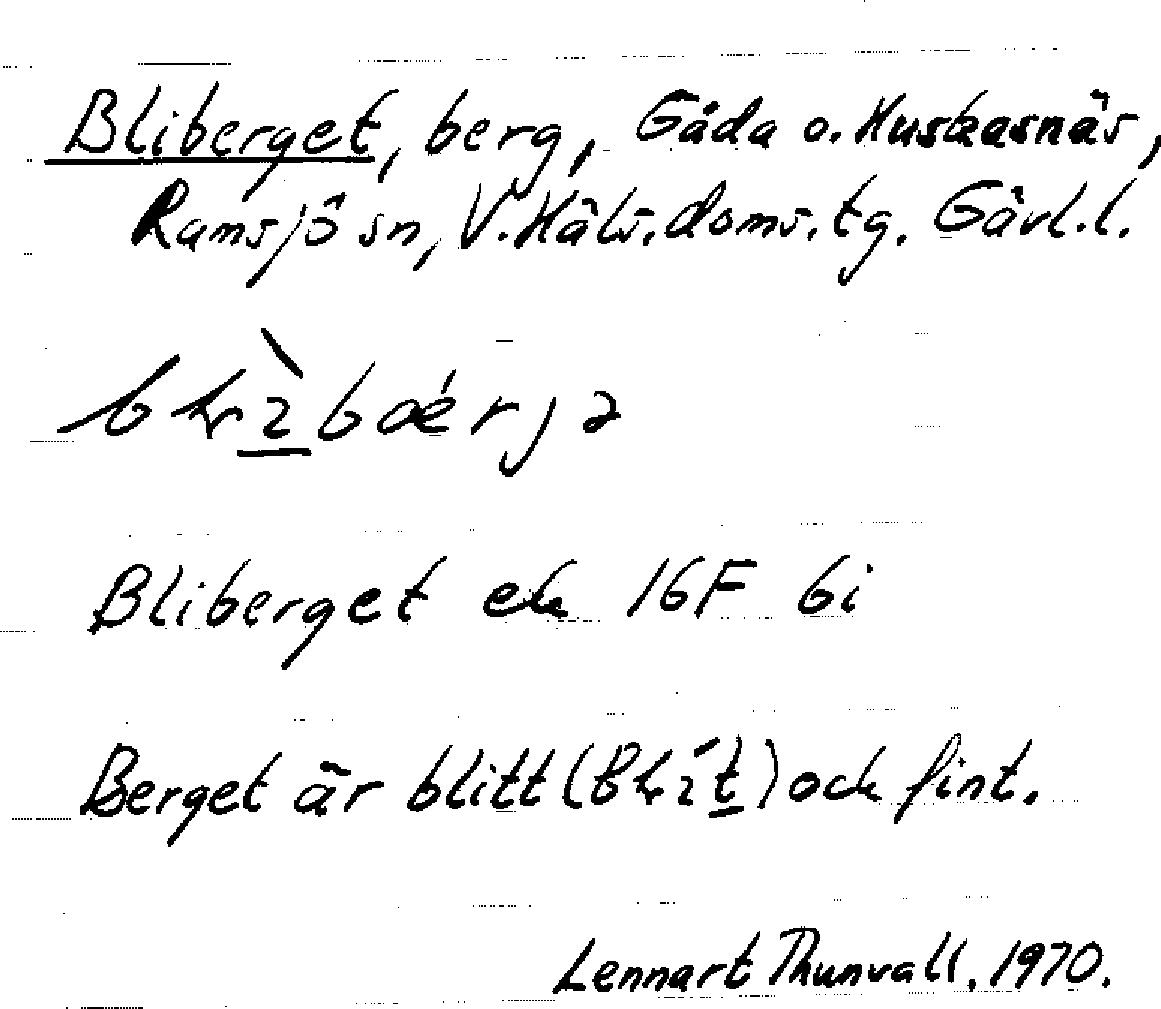 Bliberget, berg, Gåda o. Huskasnäs,
Ramsjö sn, V. Häls. doms. tg. Gävl.l.
Bliberget ek 16F 6i
Berget är blitt ( ) och fint.
Lennart Thunvall. 1970.